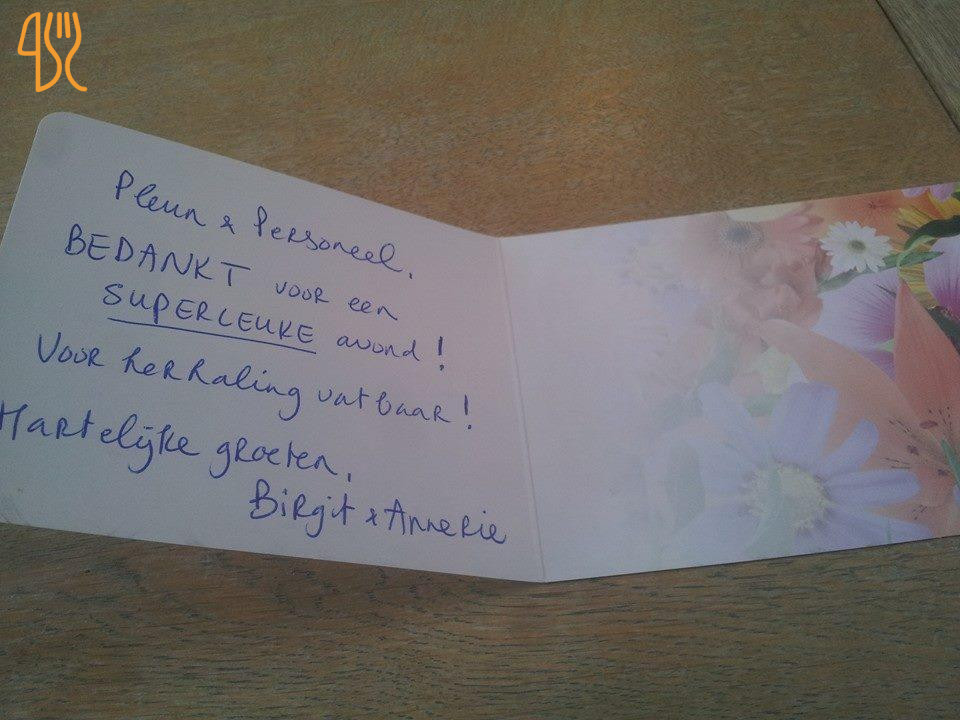 Pleun & Personeel,
BEDANKT voor een
SUPERLEUKE avond!
Voor herhaling vatbaar!
Hartelijke groeten,
Birgit & Annerie